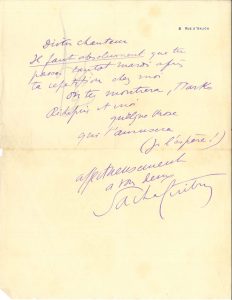 8 RUE D'ANJOU
chanteur
Il faut absolument que tu
passes tantôt mardi après
ta répétition chez moi
On te montrera,
et moi
quelque chose
qui t'amusera
(Je l'espère!)
affectueusement
à vous deux
Sacha Guitry